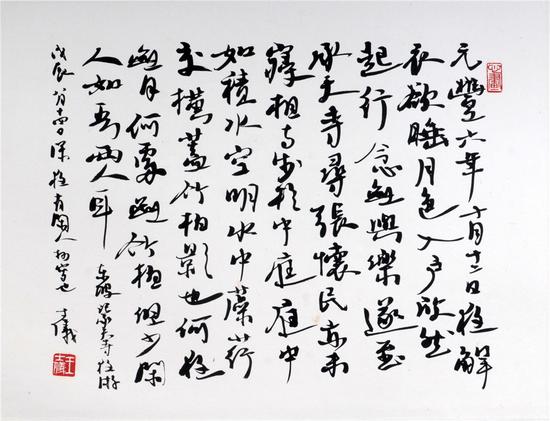 元豐六年十月十二日夜解
衣欲睡月色入户欣然
起行念無與樂遂至
承天寺尋張懷民亦未
寢相与步於中庭庭中
如積水空明水中藻荇
交横蓋竹柏影也何夜
無月何處無竹柏但少閑
人如吾兩人耳
东坡记承天寺夜游
戊辰 深夜有閑人 也 士儀